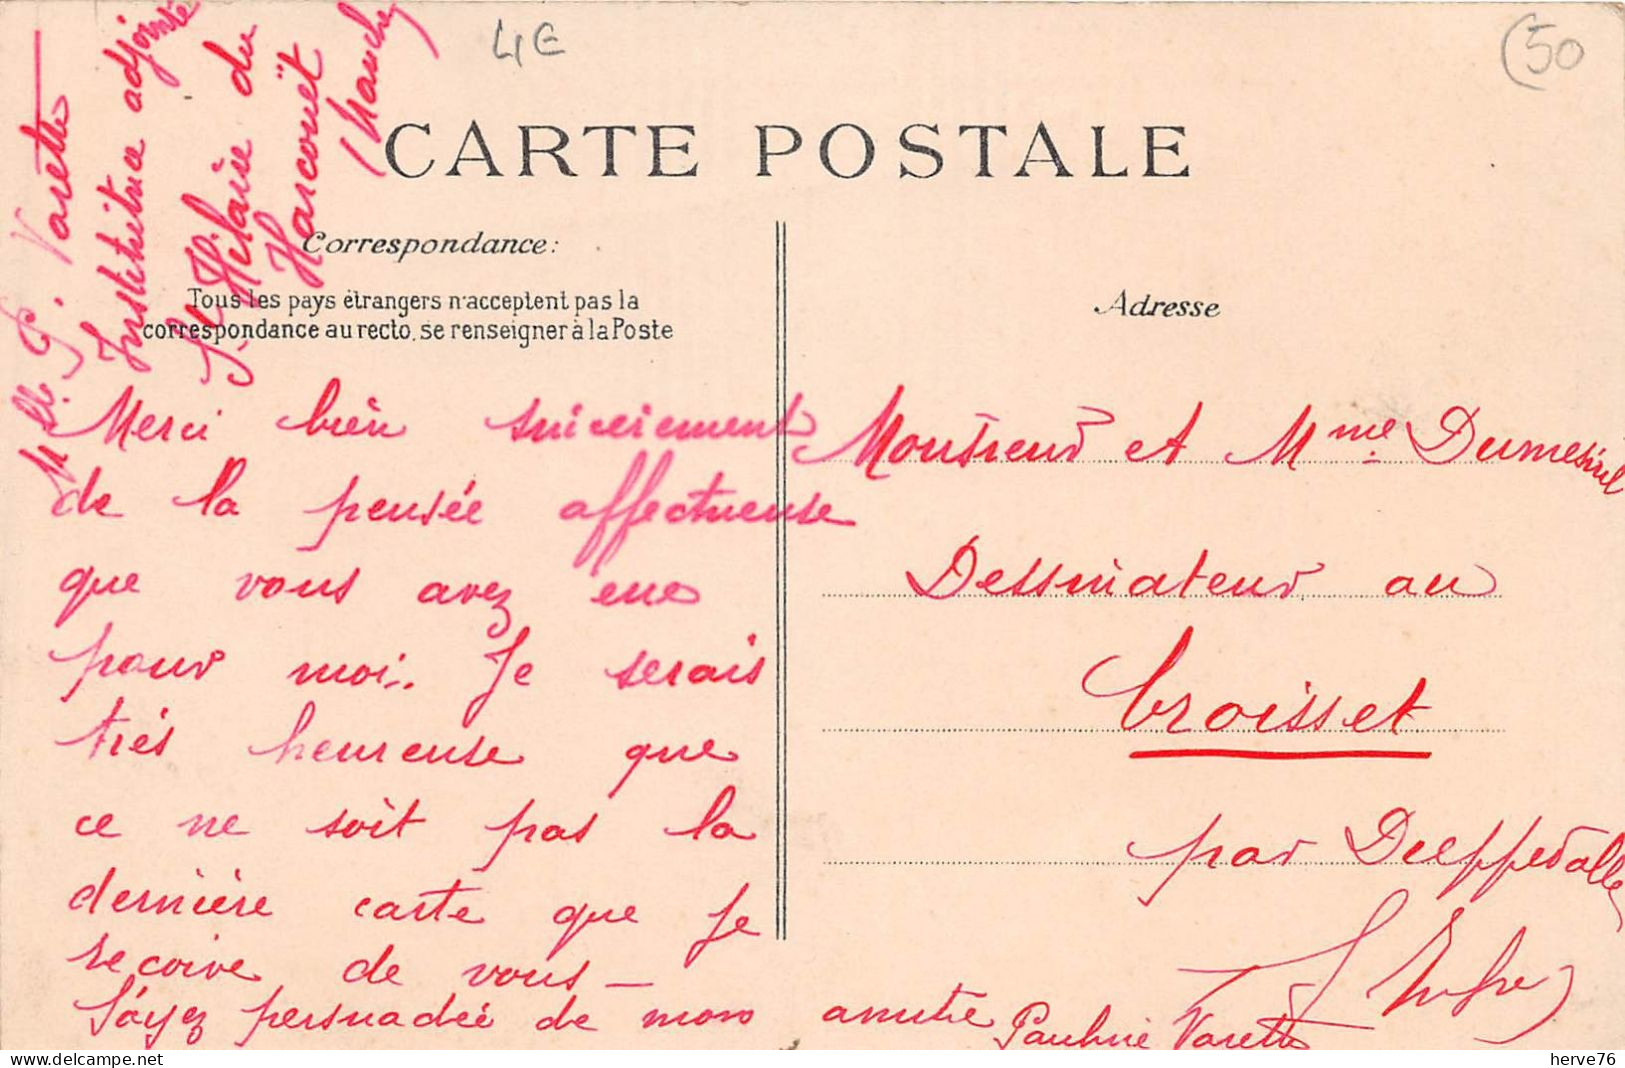 4€
(50
Mlle P. Varette
Institutrice adjointe
St Hilaire du
Harcouët
(Manche)
CARTE POSTALE
Correspondance:
Tous les pays étrangers n'acceptent pas la
correspondance au recto, se renseigner à la Poste
Merci bien sincèrement
de la pensée affectueuse
que vous avez eue
pour moi.. Je serais
très heureuse que
ce ne soit pas la
dernière carte que je
reçoive de vous —
Soyez persuadée de mon amitié
Pauline Varette
Adresse
Monsieur et Mme Dumesnil
Dessinateur au
Croisset
par Dieppedalle
(S. Infre)
herve76